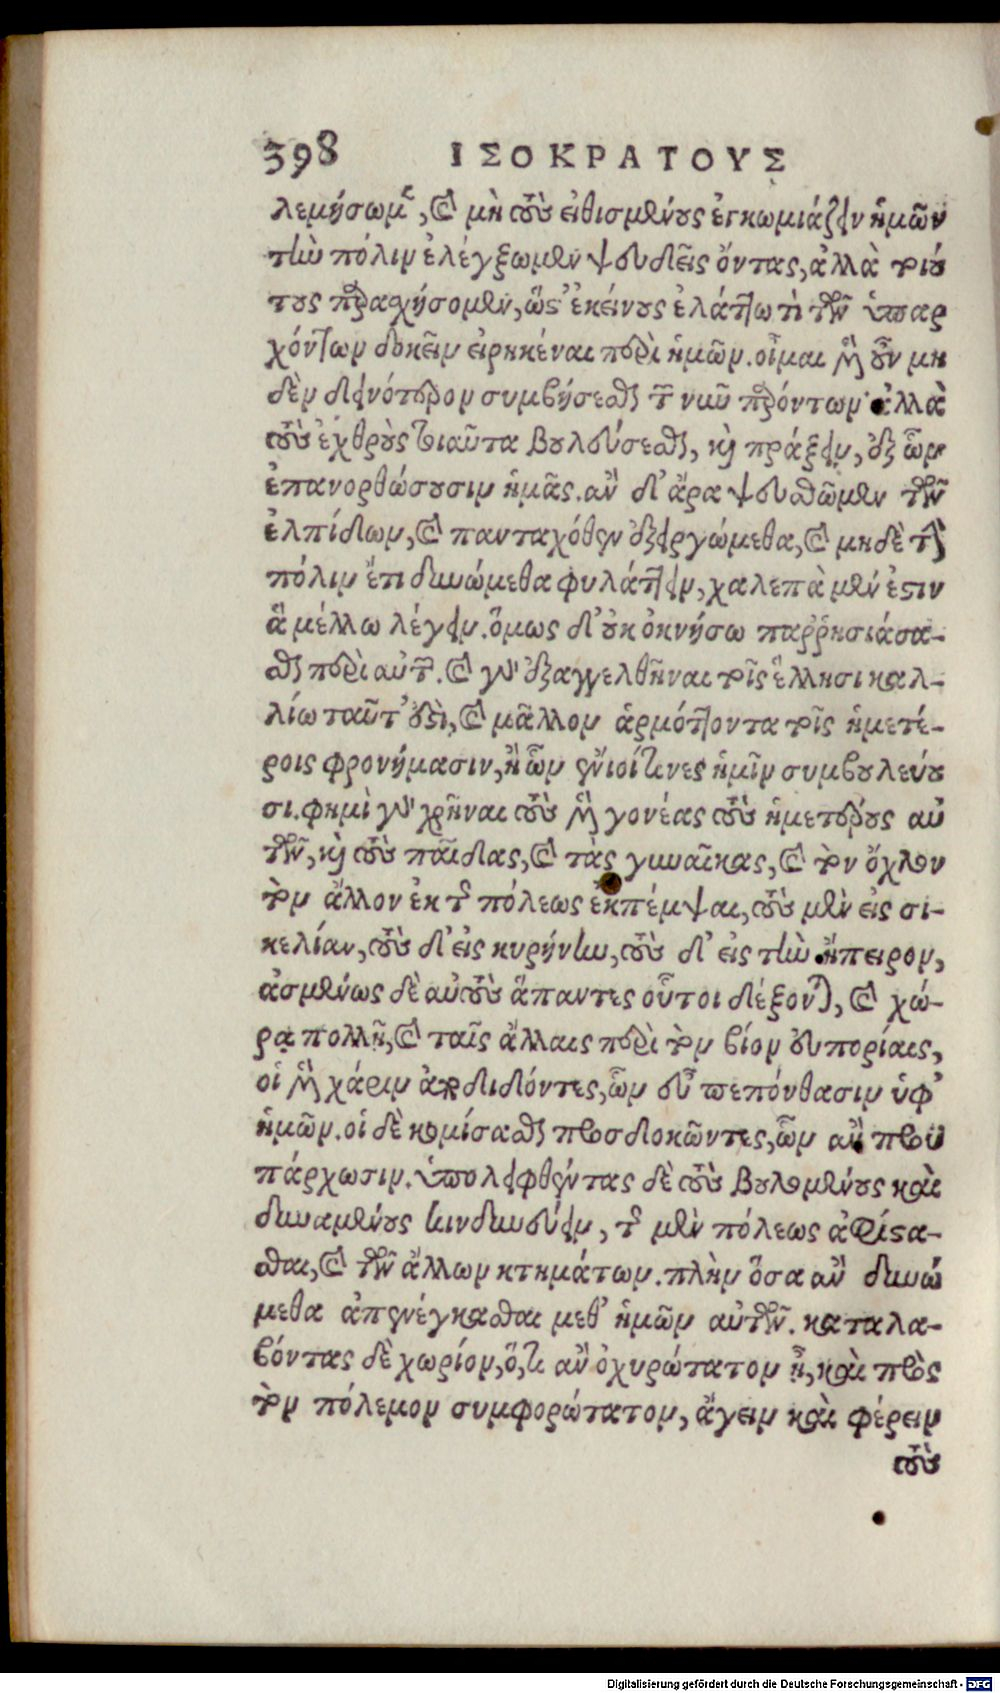 398 ΙΣΟΚΡΑΤΟΥΣ
λεμήσωμεν, καὶ μὴ τοὺς εἰθισμένους ἐγκωμιάζειν ἡμῶν
τὴν πόλιν ἐλέγξωμεν ψευδεῖς ὄντας, ἀλλὰ τοιού
τους παρασχήσομεν, ὥστ' ἐκείνους ἐλάττω τι τῶν ὑπαρ
χόντων δοκεῖν εἰρηκέναι περὶ ἡμῶν. οἶμαι μὲν οὖν μη
δὲν δεινότερον συμβήσεσθαι τῶν νῦν παρόντων· ἀλλὰ
τοὺς ἐχθροὺς τοιαῦτα βουλεύσεσθαι, καὶ πράξειν, ἐξ ὧν
ἐπανορθώσουσιν ἡμᾶς. ἂν δ' ἄρα ψευσθῶμεν τῶν
ἐλπίδων, καὶ πανταχόθεν ἐξειργώμεθα, καὶ μηδὲ τὴν
πόλιν ἔτι δυνώμεθα φυλάττειν, χαλεπὰ μέν ἐστιν
ἃ μέλλω λέγειν. ὅμως δ' οὐκ ὀκνήσω παῤῥησιάσα-
σθαι περὶ αὐτῶν. καὶ γὰρ ἐξαγγελθῆναι τοῖς ἕλλησι καλ-
λίω ταῦτ' ἐστὶ, καὶ μᾶλλον ἁρμόττοντα τοῖς ἡμετέ-
ροις φρονήμασιν, ἢ ὧν ἔνιοί τινες ἡμῖν συμβουλεύου
σι. φημὶ γὰρ χρῆναι τοὺς μὲν γονέας τοὺς ἡμετέρους αὐ
τῶν, καὶ τοὺς παῖδας, καὶ τὰς γυναῖκας, καὶ τὸν ὄχλον
τὸν ἄλλον ἐκ τῆς πόλεως ἐκπέμψαι, τοὺς μὲν εἰς σι-
κελίαν, τοὺς δ' εἰς κυρήνην, τοὺς δ' εἰς τὴν ἤπειρον,
ἀσμένως δὲ αὐτοὺς ἅπαντες οὗτοι δέξονται, καὶ χώ-
ρᾳ πολλῇ, καὶ ταῖς ἄλλαις περὶ τὸν βίον εὐπορίαις,
οἱ μὲν χάριν ἀποδιδόντες, ὧν εὖ πεπόνθασιν ὑφ'
ἡμῶν. οἱ δὲ κομίσασθαι προσδοκῶντες, ὧν ἂν προϋ
πάρχωσιν. ὑπολειφθέντας δὲ τοὺς βουλομένους καὶ
δυναμένους κινδυνεύειν, τῆς μὲν πόλεως ἀφίστα-
σθαι, καὶ τῶν ἄλλων κτημάτων. πλὴν ὅσα ἂν δυνώ
μεθα ἀπενέγκασθαι μεθ' ἡμῶν αὐτῶν. καταλα-
βόντας δὲ χωρίον, ὅ,τι ἂν ὀχυρώτατον ᾖ, καὶ πρὸς
τὸν πόλεμον συμφορώτατον, ἄγειν καὶ φέρειν
τοὺς
Digitalisierung gefördert durch die Deutsche Forschungsgemeinschaft - DFG